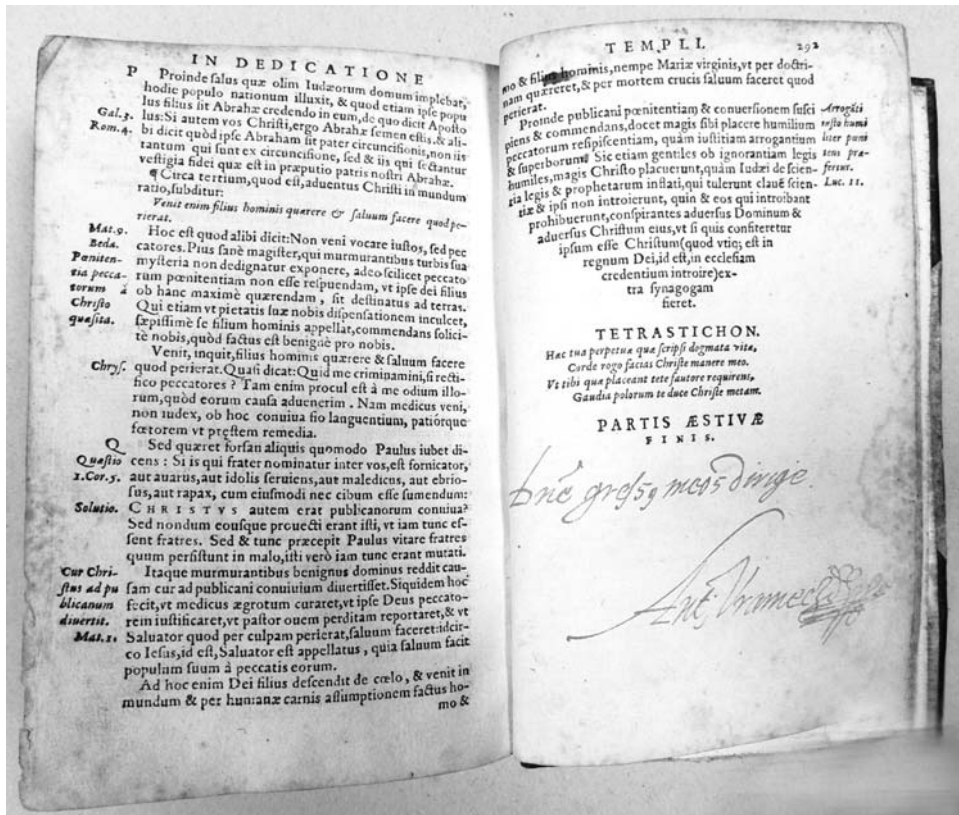 IN DEDICATIONE
P Proinde ſalus quæ olim Iudæorum domum implebat,
hodie populo nationum illuxit, & quod etiam ipſe popu
lus filius ſit Abrahæ credendo in eum, de quo dicit Apoſto
Gal.3. lus: Si autem vos Chriſti, ergo Abrahæ ſemen eſtis. & ali-
Rom.4. bi dicit quòd ipſe Abraham ſit pater circunciſionis, non iis
tantum qui ſunt ex circunciſione, ſed & iis qui ſectantur
veſtigia fidei quæ eſt in præputio patris noſtri Abrahæ.
¶ Circa tertium, quod eſt, aduentus Chriſti in mundum
ratio, ſubditur:
Venit enim filius hominis quærere & ſaluum facere quod pe-
rierat.
Mat.9. Hoc eſt quod alibi dicit: Non veni vocare iuſtos, ſed pec
Beda. catores. Pius ſanè magiſter, qui murmurantibus turbis ſua
Pœniten- myſteria non dedignatur exponere, adeo ſcilicet peccato
tia pecca- rum pœnitentiam non eſſe reſpuendam, vt ipſe dei filius
torum à ob hanc maximè quærendam, ſit deſtinatus ad terras.
Chriſto Qui etiam vt pietatis ſuæ nobis diſpenſationem inculcet,
quæſita. ſæpiſſimè ſe filium hominis appellat, commendans ſolici-
tè nobis, quòd factus eſt benignè pro nobis.
Venit, inquit, filius hominis quærere & ſaluum facere
Chryſ. quod perierat. Quaſi dicat: Quid me criminamini, ſi recti-
fico peccatores? Tam enim procul eſt à me odium illo-
rum, quòd eorum cauſa aduenerim. Nam medicus veni,
non iudex, ob hoc conuiua fio languentium, patiórque
fœtorem vt præſtem remedia.
Q Sed quæret forſan aliquis quomodo Paulus iubet di-
Quæſtio cens: Si is qui frater nominatur inter vos, eſt fornicator,
1.Cor.5. aut auarus, aut idolis ſeruiens, aut maledicus, aut ebrio-
ſus, aut rapax, cum eiuſmodi nec cibum eſſe ſumendum:
Solutio. CHRISTVS autem erat publicanorum conuiua?
Sed nondum eouſque prouecti erant iſti, vt iam tunc eſ-
ſent fratres. Sed & tunc præcepit Paulus vitare fratres
quum perſiſtunt in malo, iſti verò iam tunc erant mutati.
Cur Chri- Itaque murmurantibus benignus dominus reddit cau-
ſtus ad pu ſam cur ad publicani conuiuium diuertiſſet. Siquidem hoc
blicanum fecit, vt medicus ægrotum curaret, vt ipſe Deus peccato-
diuertit. rem iuſtificaret, vt paſtor ouem perditam reportaret, & vt
Mat.1. Saluator quod per culpam perierat, ſaluum faceret: idcir-
co Ieſus, id eſt, Saluator eſt appellatus, quia ſaluum facit
populum ſuum à peccatis eorum.
Ad hoc enim Dei filius deſcendit de cœlo, & venit in
mundum & per humanæ carnis aſſumptionem factus ho-
mo &
TEMPLI. 292
mo & filius hominis, nempe Mariæ virginis, vt per doctri-
nam quæreret, & per mortem crucis ſaluum faceret quod
perierat.
Proinde publicani pœnitentiam & conuerſionem ſuſci Arrogãti
piens & commendans, docet magis ſibi placere humilium iuſto humi
peccatorum reſipiſcentiam, quàm iuſtitiam arrogantium liter pœni
& ſuperborum. Sic etiam gentiles ob ignorantiam legis tens præ-
humiles, magis Chriſto placuerunt, quàm Iudæi de ſcien- fertur.
tia legis & prophetarum inflati, qui tulerunt clauẽ ſcien- Luc. 11.
tiæ & ipſi non introierunt, quin & eos qui introibant
prohibuerunt, conſpirantes aduerſus Dominum &
aduerſus Chriſtum eius, vt ſi quis confiteretur
ipſum eſſe Chriſtum (quod vtiq; eſt in
regnum Dei, id eſt, in eccleſiam
credentium introire) ex-
tra ſynagogam
fieret.
TETRASTICHON.
Hæc tua perpetuæ quæ ſcripſi dogmata vitæ,
Corde rogo facias Chriſte manere meo.
Vt tibi quæ placeant tete fautore requirens,
Gaudia polorum te duce Chriſte metam.
PARTIS ÆSTIVÆ
FINIS.
Dne greſſ9 meos dirige.
Ant: Vramecz